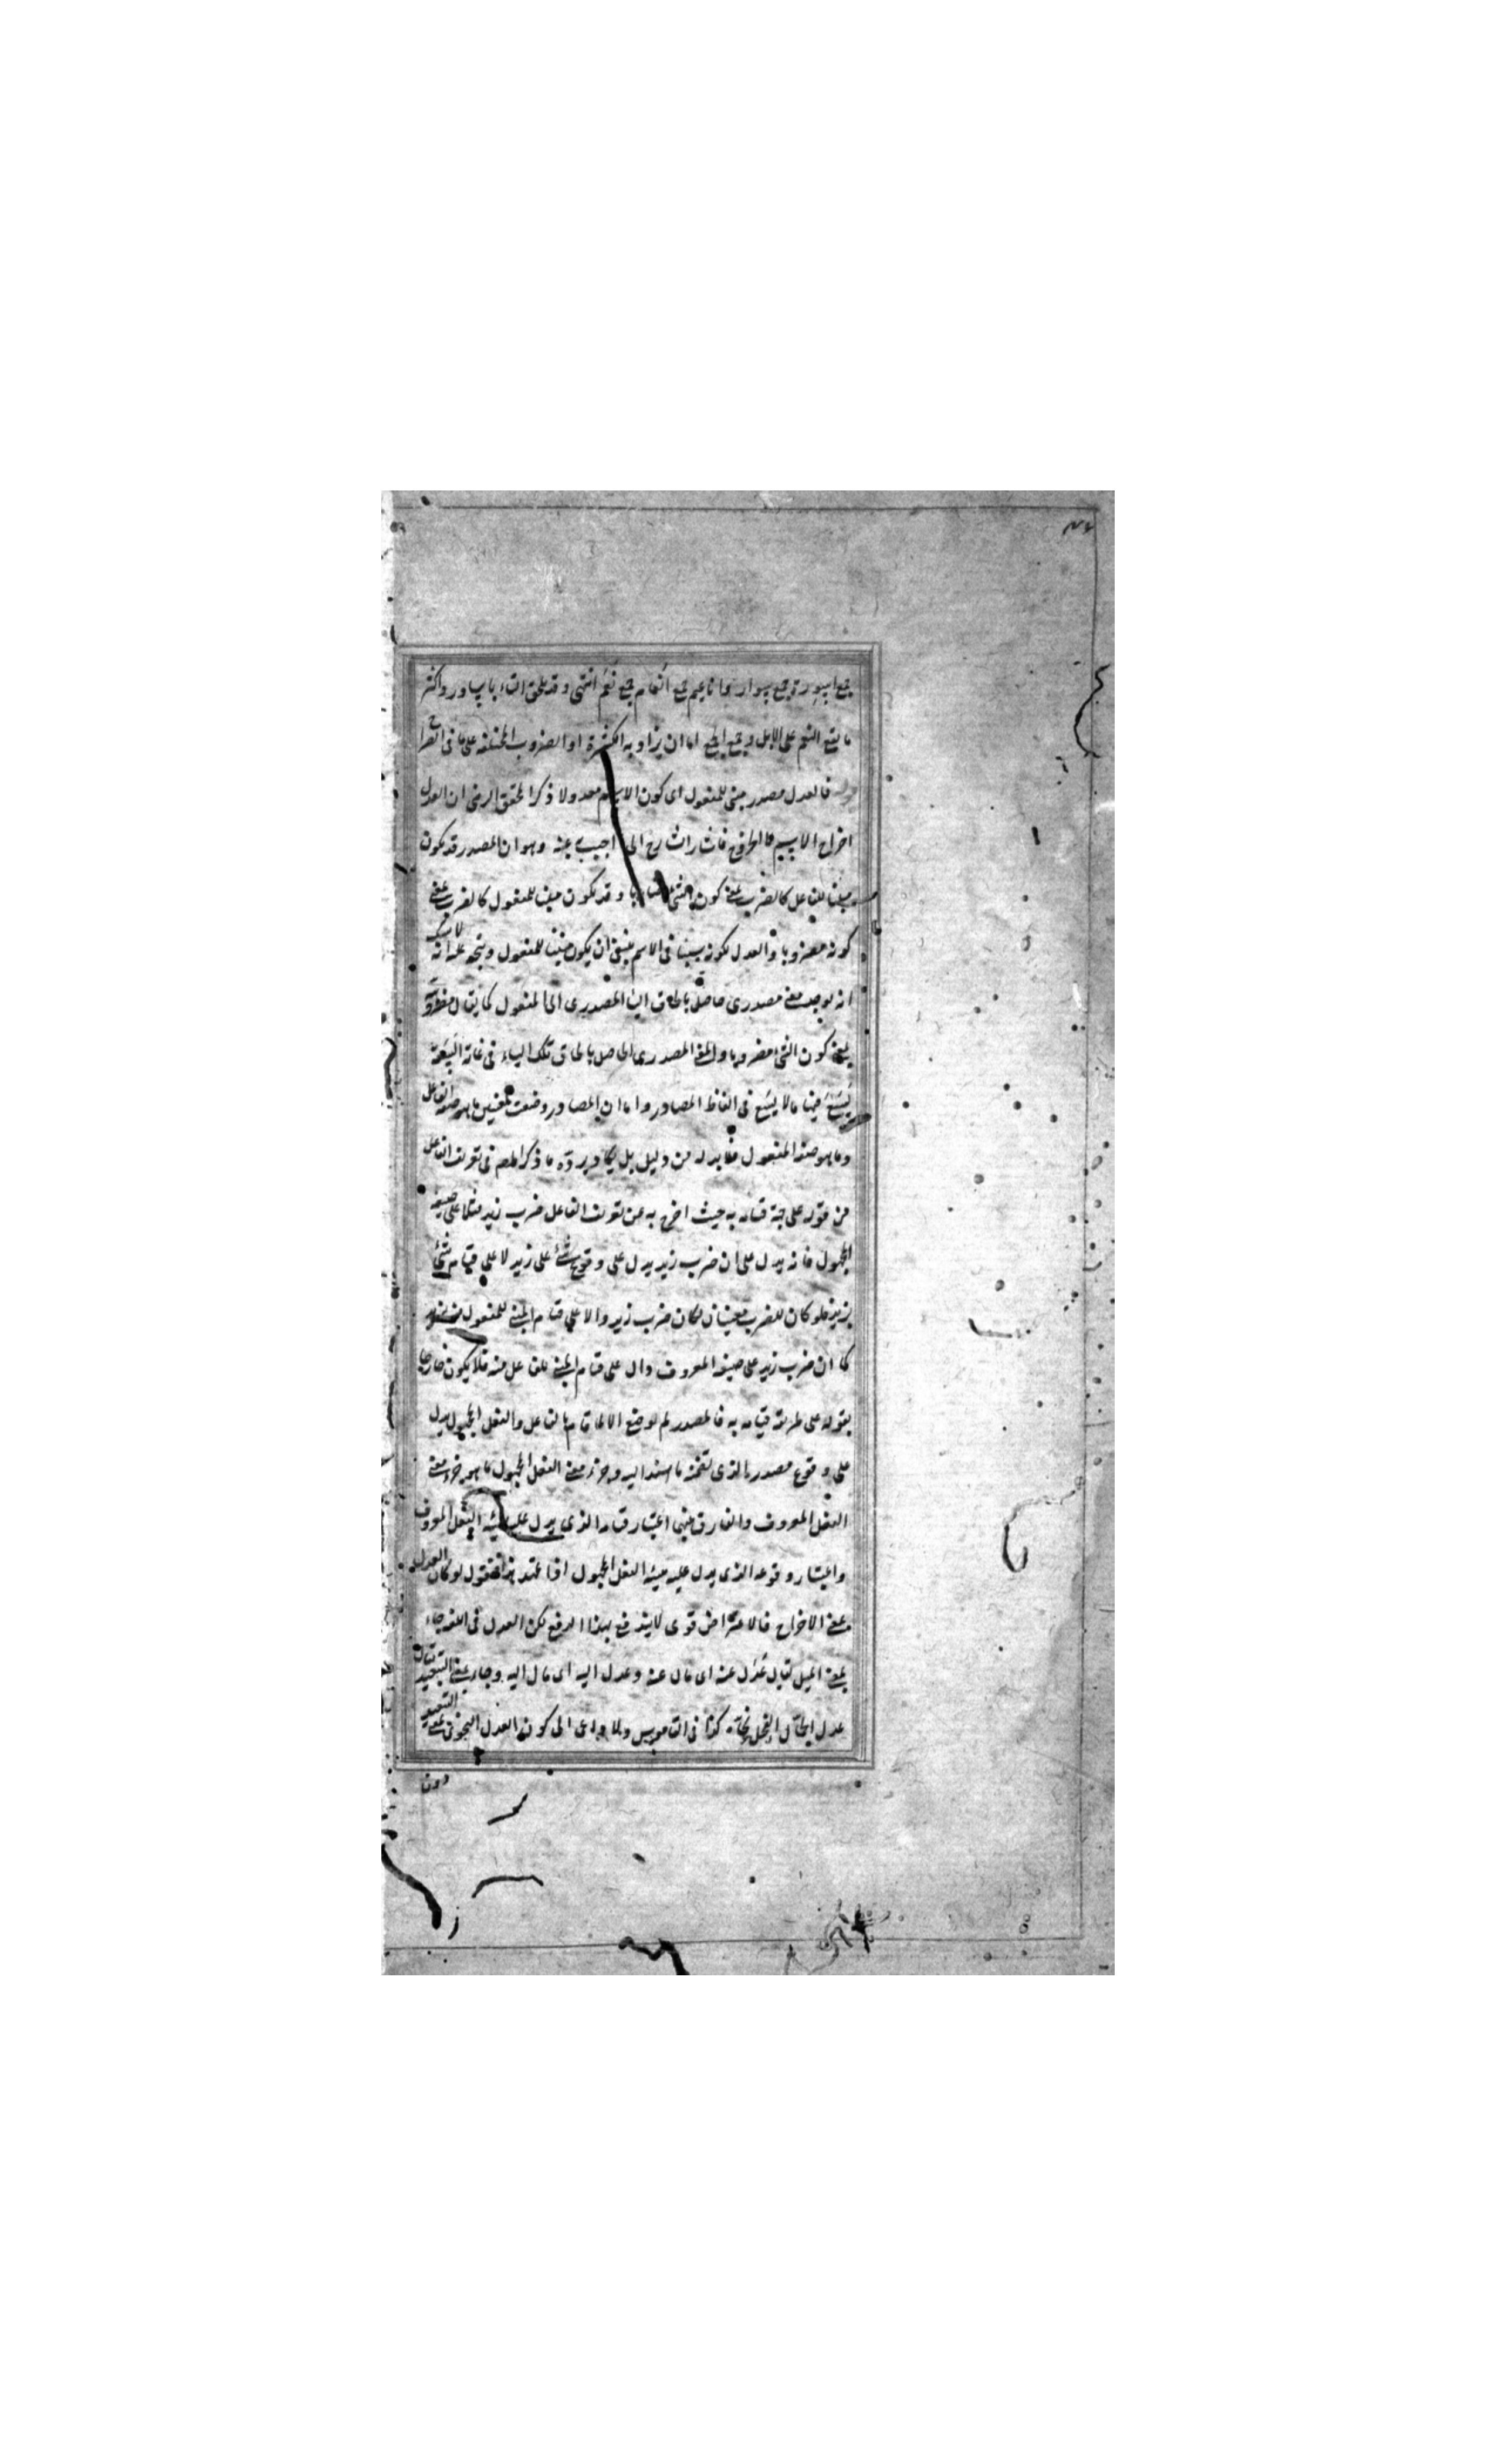 جمع اسورة جمع سوار واناعيم جمع انعام جمع نعم انتهى وقد يلحق التاء باساور واكثر
ما يقع النعم على الابل وجمع الجمع اما ان يراد به الكثرة او الضروب المختلفة على ما فى الصراح
قوله فالعدل مصدر مبنى للمفعول اى كون الاسم معدولا ذكر المحقق الرضى ان العدل
اخراج الاسم فاشار الشارح الى اجيب عنه وهو ان المصدر قد يكون
مبنيا للفاعل كالضرب بمعنى كون الشئ ضاربا وقد يكون مبنيا للمفعول كالضرب بمعنى
كونه مضروبا والعدل لكونه سببا فى الاسم ينبغى ان يكون مبنيا للمفعول ويتجه عليه انه لا شك
انه يوجد معنى مصدرى حاصل بالحاق الياء المصدرى الى المفعول كما يقال مضروبية
بمعنى كون الشئ مضروبا والمعنى المصدرى الحاصل بالحاق تلك الياء فى غاية السعة
يسع فيها ما لا يسع فى الفاظ المصادر واما ان المصادر وضعت لمعنيين ما هو صفة الفاعل
وما هو صفة المفعول فلا بد له من دليل بل يكاد يرده ما ذكر المص فى تعريف الفاعل
من قوله على جهة قيامه به حيث اخرج به عن تعريف الفاعل ضرب زيد مثلا على صيغة
المجهول فانه يدل على ان ضرب زيد يدل على وقوع شئ على زيد لا على قيام شئ
بزيد فلو كان للضرب معنيان لكان ضرب زيد دالا على قيام المبنى للمفعول
كما ان ضرب زيد على صيغة المعروف دال على قيام المبنى للفاعل منه فلا يكون خارجا
بقوله على طريقة قيامه به فالمصدر لم يوضع الا لما قام بالفاعل والفعل المجهول يدل
على وقوع مصدره الذى تضمنه ما اسند اليه وجزء معنى الفعل المجهول ما هو جزء معنى
الفعل المعروف والفارق بينهما اعتبار قيامه الذى يدل عليه هيئة الفعل المعروف
واعتبار وقوعه الذى يدل عليه هيئة الفعل المجهول اذا تمهد هذا فنقول لو كان العدل
بمعنى الاخراج فالاعتراض قوى لا يندفع بهذا الدفع لكن العدل فى اللغة جاء
بمعنى الميل يقال عدل عنه اى مال عنه وعدل اليه اى مال اليه وجاء بمعنى التبعيد يقال
عدل الجمال الفحل نحاه كذا فى القاموس ولا داعى الى كون العدل النحوى بمعنى التبعيد
دون